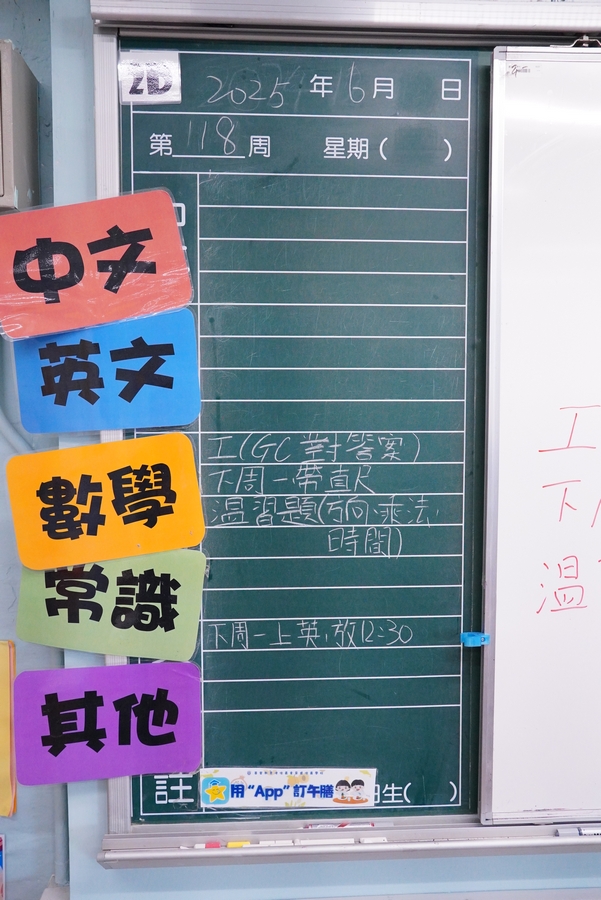 2D
2025 年 6 月 日
第 118 周 星期( )
中文
英文
數學
工(GC對答案)
下周一帶直尺
溫習題(方向、乘法、
時間)
常識
下周一上英,放12:30
其他
註
用“App”訂午膳
生( )
工
下
溫